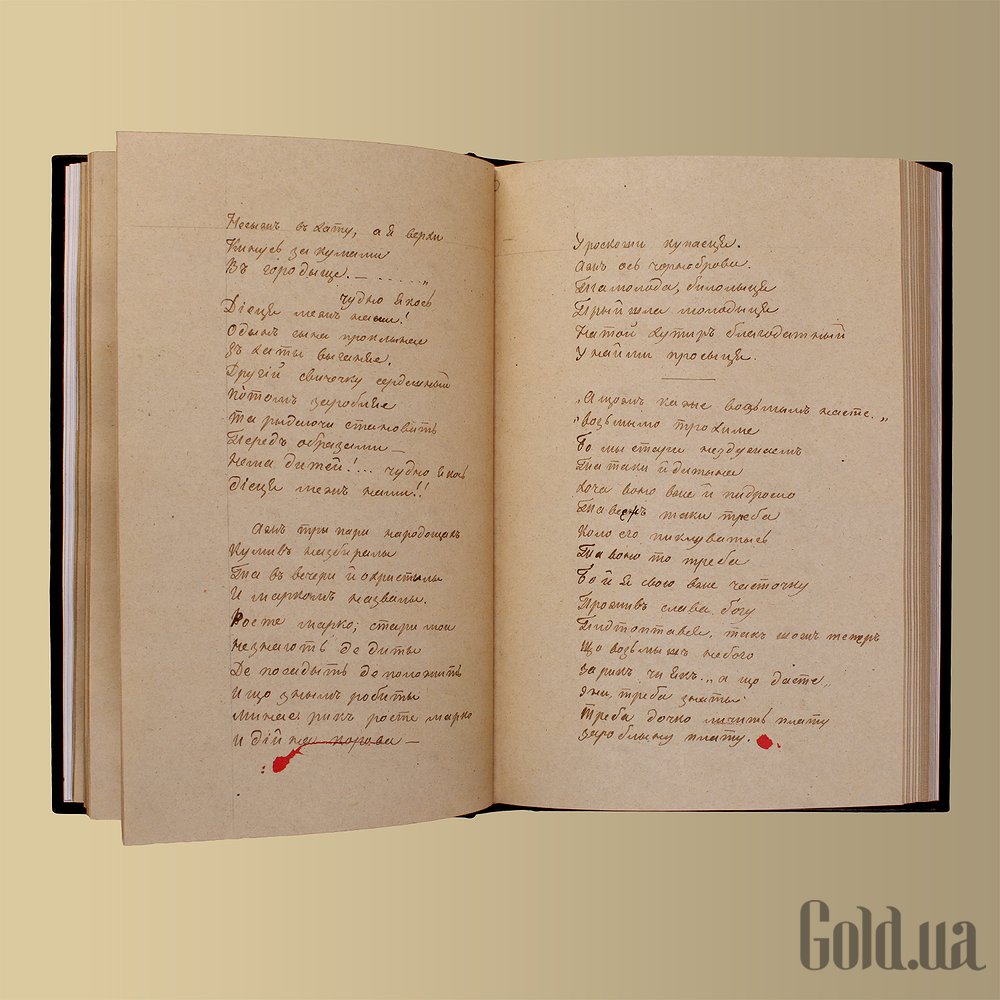 Несыть въ хату, а я верхи
Кинусь за кумами
Въ городыще. — ......"
чудно якось
Діеця межъ нами!
Одынъ сына проклынае
Зъ хаты выганяе.
Другій свичечку сердешный
Потомъ заробляе
Та рыдаючи становыть
Передъ образами —
Нема дитей!... чудно якось
Діеця межъ нами!!
Ажъ тры пари на родощахъ
Кумивъ назбиралы
Та въ вечери й охрыстылы
И Маркомъ назвалы.
Росте Марко; стари мои
Незнають де диты
Де посадыть де положить
И що знымъ робиты
Минае рикъ росте Марко
И дійна корова —
У роскоши купаеця.
Ажъ ось чорноброва.
Та молода, билолыця
Прыйшла молодыця
На той хутиръ благодатный
У найми просыця.
„А щожъ каже возьмымъ насте."
„возьмымо трохиме
Бо мы стари нездужаемъ
Та таки й дитына
Хоча воно вже й пидросло
Та всежъ таки треба
Коло его пиклуватысь
Та воно то треба
Бо й я свою вже часточку
Проживъ слава богу
Пидтоптався, такъ щожъ теперъ
Що возьмышъ небого
За рикъ чи якъ.." а що дасте„
Эни, треба знаты
Треба дочко личить плату
Зароблену плату.
Gold.ua